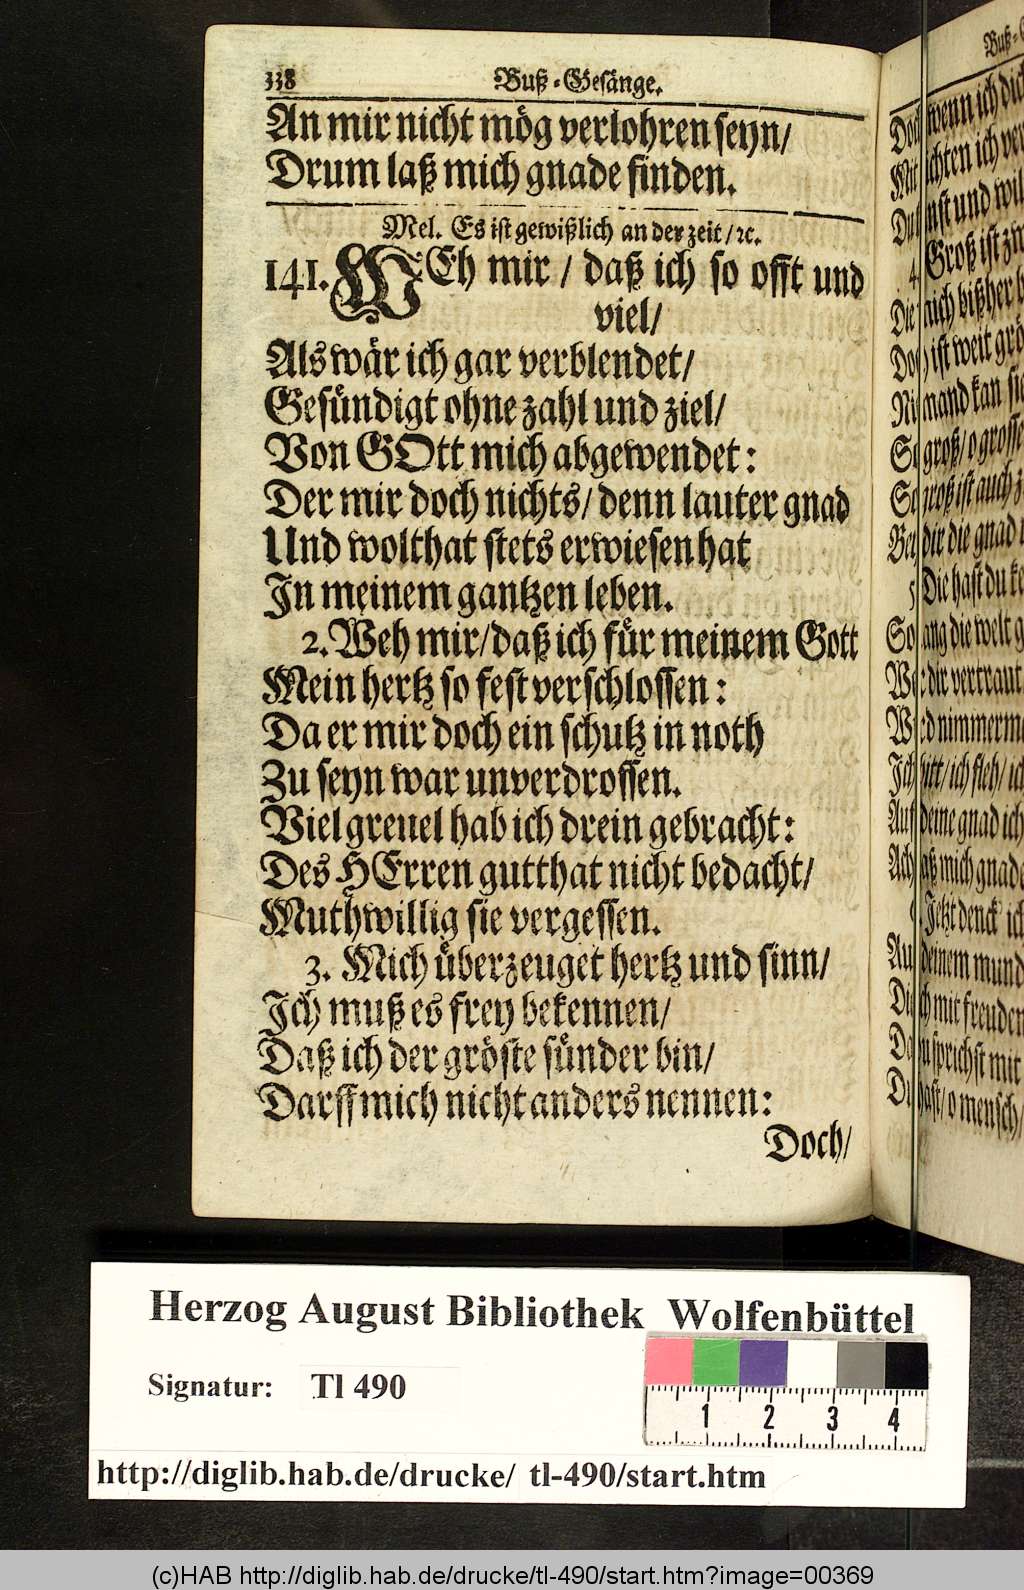 338 Buß-Gesänge.
An mir nicht mög verlohren seyn/
Drum laß mich gnade finden.
Mel. Es ist gewißlich an der zeit/ꝛc.
141. WEh mir / daß ich so offt und
viel/
Als wär ich gar verblendet/
Gesündigt ohne zahl und ziel/
Von GOtt mich abgewendet:
Der mir doch nichts/ denn lauter gnad
Und wolthat stets erwiesen hat
In meinem gantzen leben.
2. Weh mir/daß ich für meinem Gott
Mein hertz so fest verschlossen:
Da er mir doch ein schutz in noth
Zu seyn war unverdrossen.
Viel greuel hab ich drein gebracht:
Des HErren gutthat nicht bedacht/
Muthwillig sie vergessen.
3. Mich überzeuget hertz und sinn/
Ich muß es frey bekennen/
Daß ich der gröste sünder bin/
Darff mich nicht anders nennen:
Doch/
Buß-
wenn ich dich
ichten ich
und
Groß ist
bißher
ist weit
kan
groß/o grosse
groß ist auch
dir die gnad
5 Die hast du
So lang die welt
dir vertraut
nimmerm
bitt/ich fleh/
Auf deine gnad ich
Ach laß mich gnade
Jetzt denck ich
deinem mund
mit freuden
sprichst mit
hast/o mensch/
Herzog August Bibliothek Wolfenbüttel
Signatur: Tl 490
1 2 3 4
http://diglib.hab.de/drucke/ tl-490/start.htm
(c)HAB http://diglib.hab.de/drucke/tl-490/start.htm?image=00369